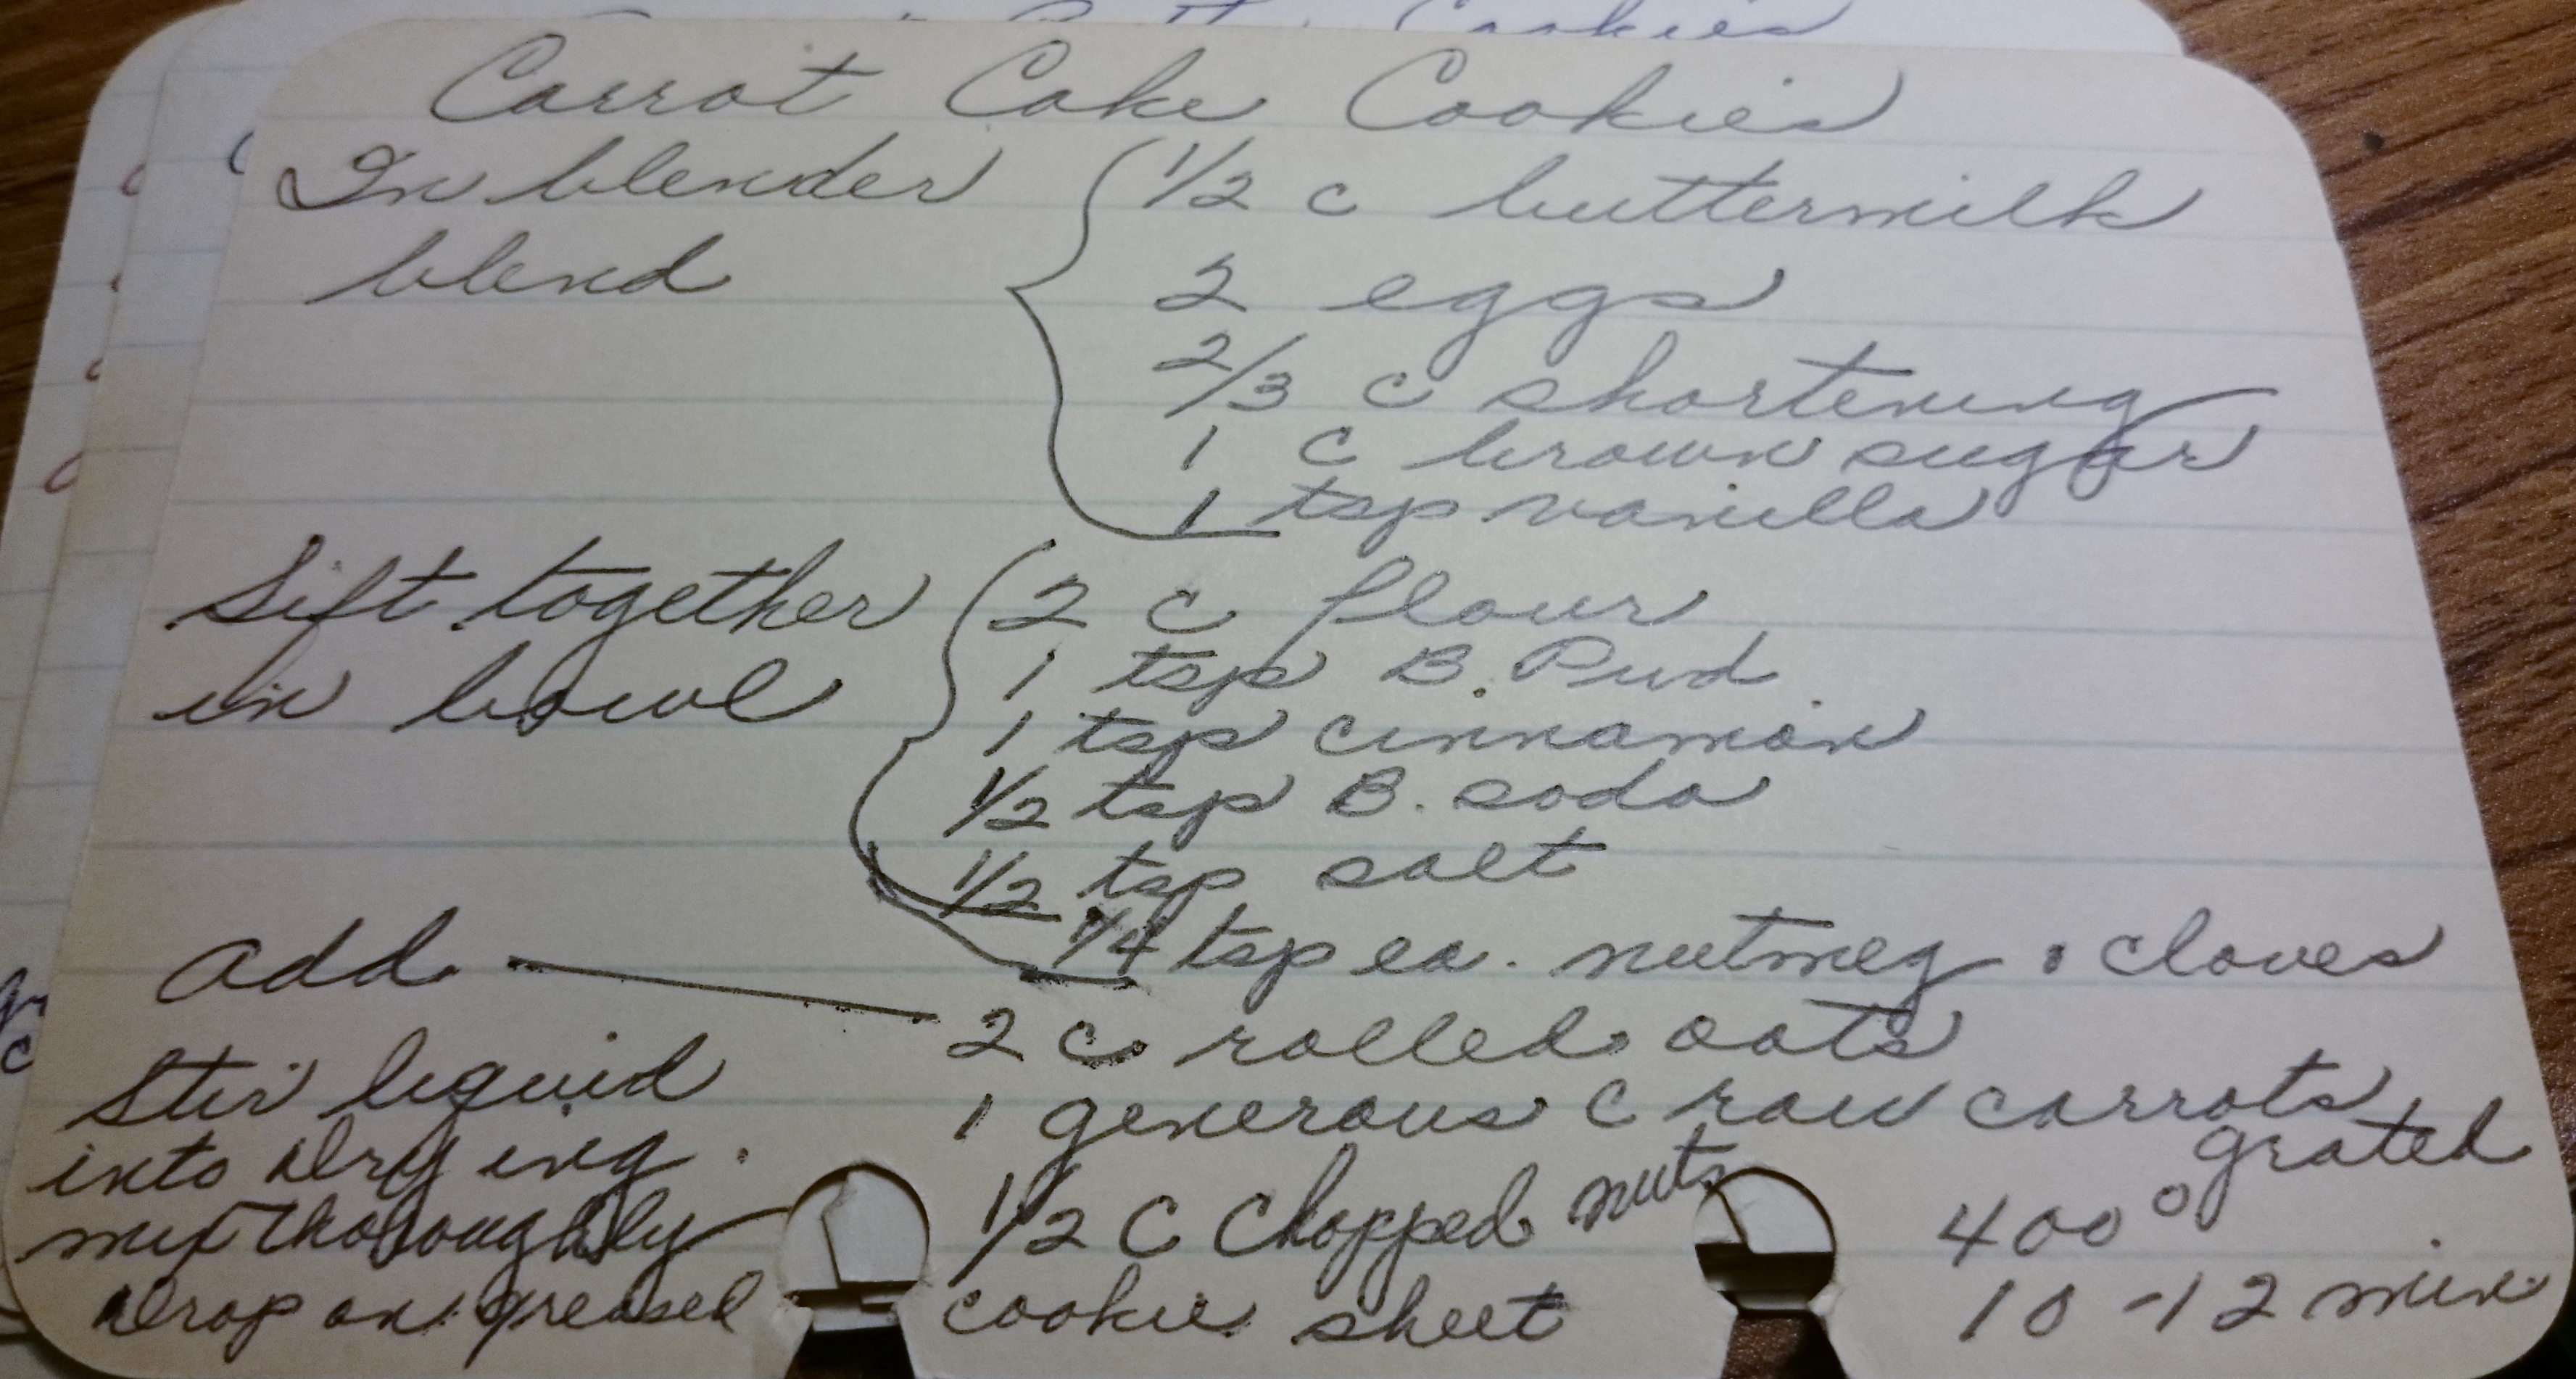 Cookies
Carrot Cake Cookies
In blender
blend
1/2 c buttermilk
2 eggs
2/3 c shortening
1 c brown sugar
1 tsp vanilla
Sift together
in bowl
2 c flour
1 tsp B. Pwd.
1 tsp cinnamon
1/2 tsp B. soda
1/2 tsp salt
1/4 tsp ea. nutmeg, cloves
add
2 c rolled oats
1 generous c raw carrots
grated
1/2 C Chopped nuts
Stir liquid
into dry ing.
mix thoroughly
Drop on greased cookie sheet
400°
10-12 min